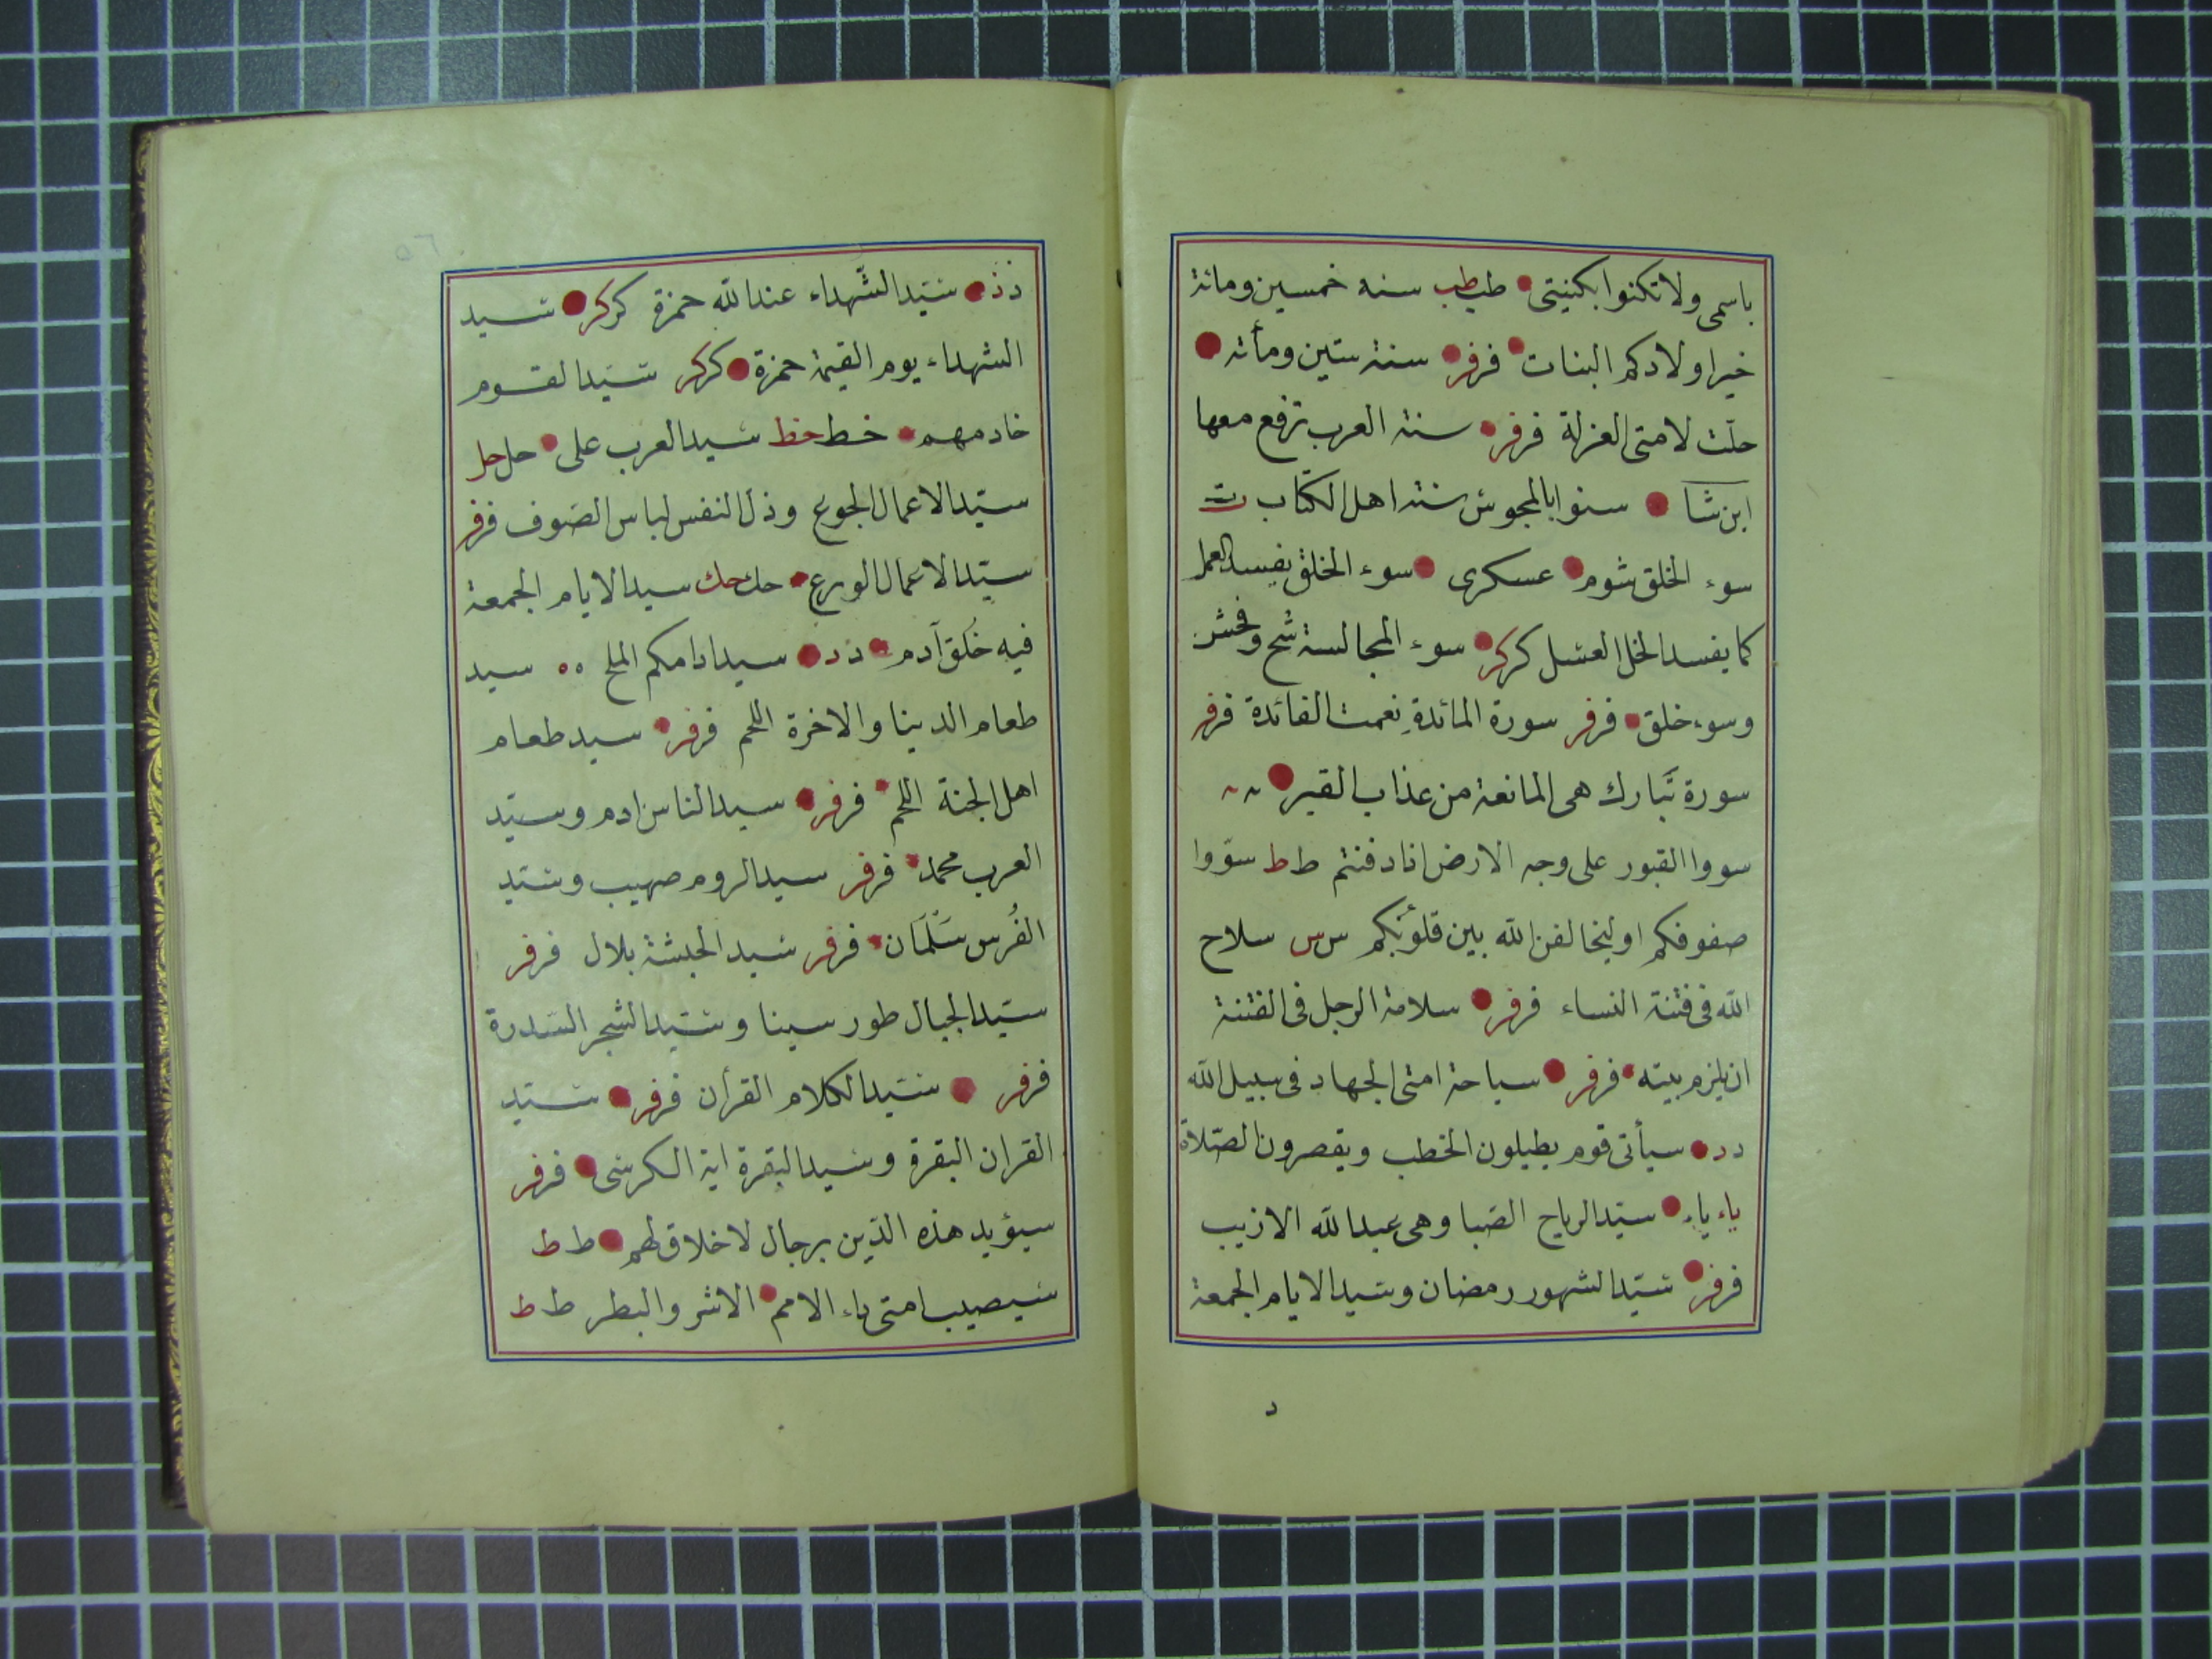 باسمى ولا تكنوا بكنيتى طب طب سنه خمسين ومائة
خير اولادكم البنات فر فر سنة ستين ومأته
حلت لامتى العزلة فر فر سنة العرب ترفع معها
ابن شا سنوا بالمجوش سنة اهل الكتاب ت
سوء الخلق شوم عسكرى سوء الخلق يفسد العمل
كما يفسد الخل العسل كر كر سوء المجالسة شح وفحش
وسوء خلق فر فر سورة المائدة نعمت الفائدة فر فر
سورة تبارك هى المانعة من عذاب القبر
سووا القبور على وجه الارض اذا دفنتم ط ط سوّوا
صفوفكم او ليخالفن الله بين قلوبكم س س سلاح
الله فى فتنة النساء فر فر سلامة الرجل فى الفتنة
ان يلزم بيته فر فر سياحة امتى الجهاد فى سبيل الله
د د سيأتى قوم يطيلون الخطب ويقصرون الصّلاة
ياء ياء سيّد الرياح الصّبا وهى عبد الله الازيب
فر فر سيّد الشهور رمضان وسيد الايام الجمعة
د
ذ ذ سيّد الشّهداء عند الله حمزة كر كر سيد
الشهداء يوم القيمة حمزة كر كر سيّد القوم
خادمهم خط خط سيد العرب على حل حل
سيّد الاعمال الجوع وذل النفس لباس الصّوف فر فر
سيّد الاعمال الورع حك حك سيد الايام الجمعة
فيه خُلق آدم د د سيد ادامكم الملح ه ه سيد
طعام الدينا والاخرة اللحم فر فر سيد طعام
اهل الجنة اللحم فر فر سيد الناس ادم وسيّد
العرب محمد فر فر سيد الروم صهيب وسيّد
الفُرس سَلْمَان فر فر سيد الحبشة بلال فر فر
سيّد الجبال طور سينا وسيّد الشجر السّدرة
فر فر سيّد الكلام القرأن فر فر سيّد
القران البقرة وسيد البقرة اية الكرسى فر فر
سيؤيد هذه الدّين برجال لا خلاق لهم ط ط
سيصيب امتى داء الامم الاشر والبطر ط ط